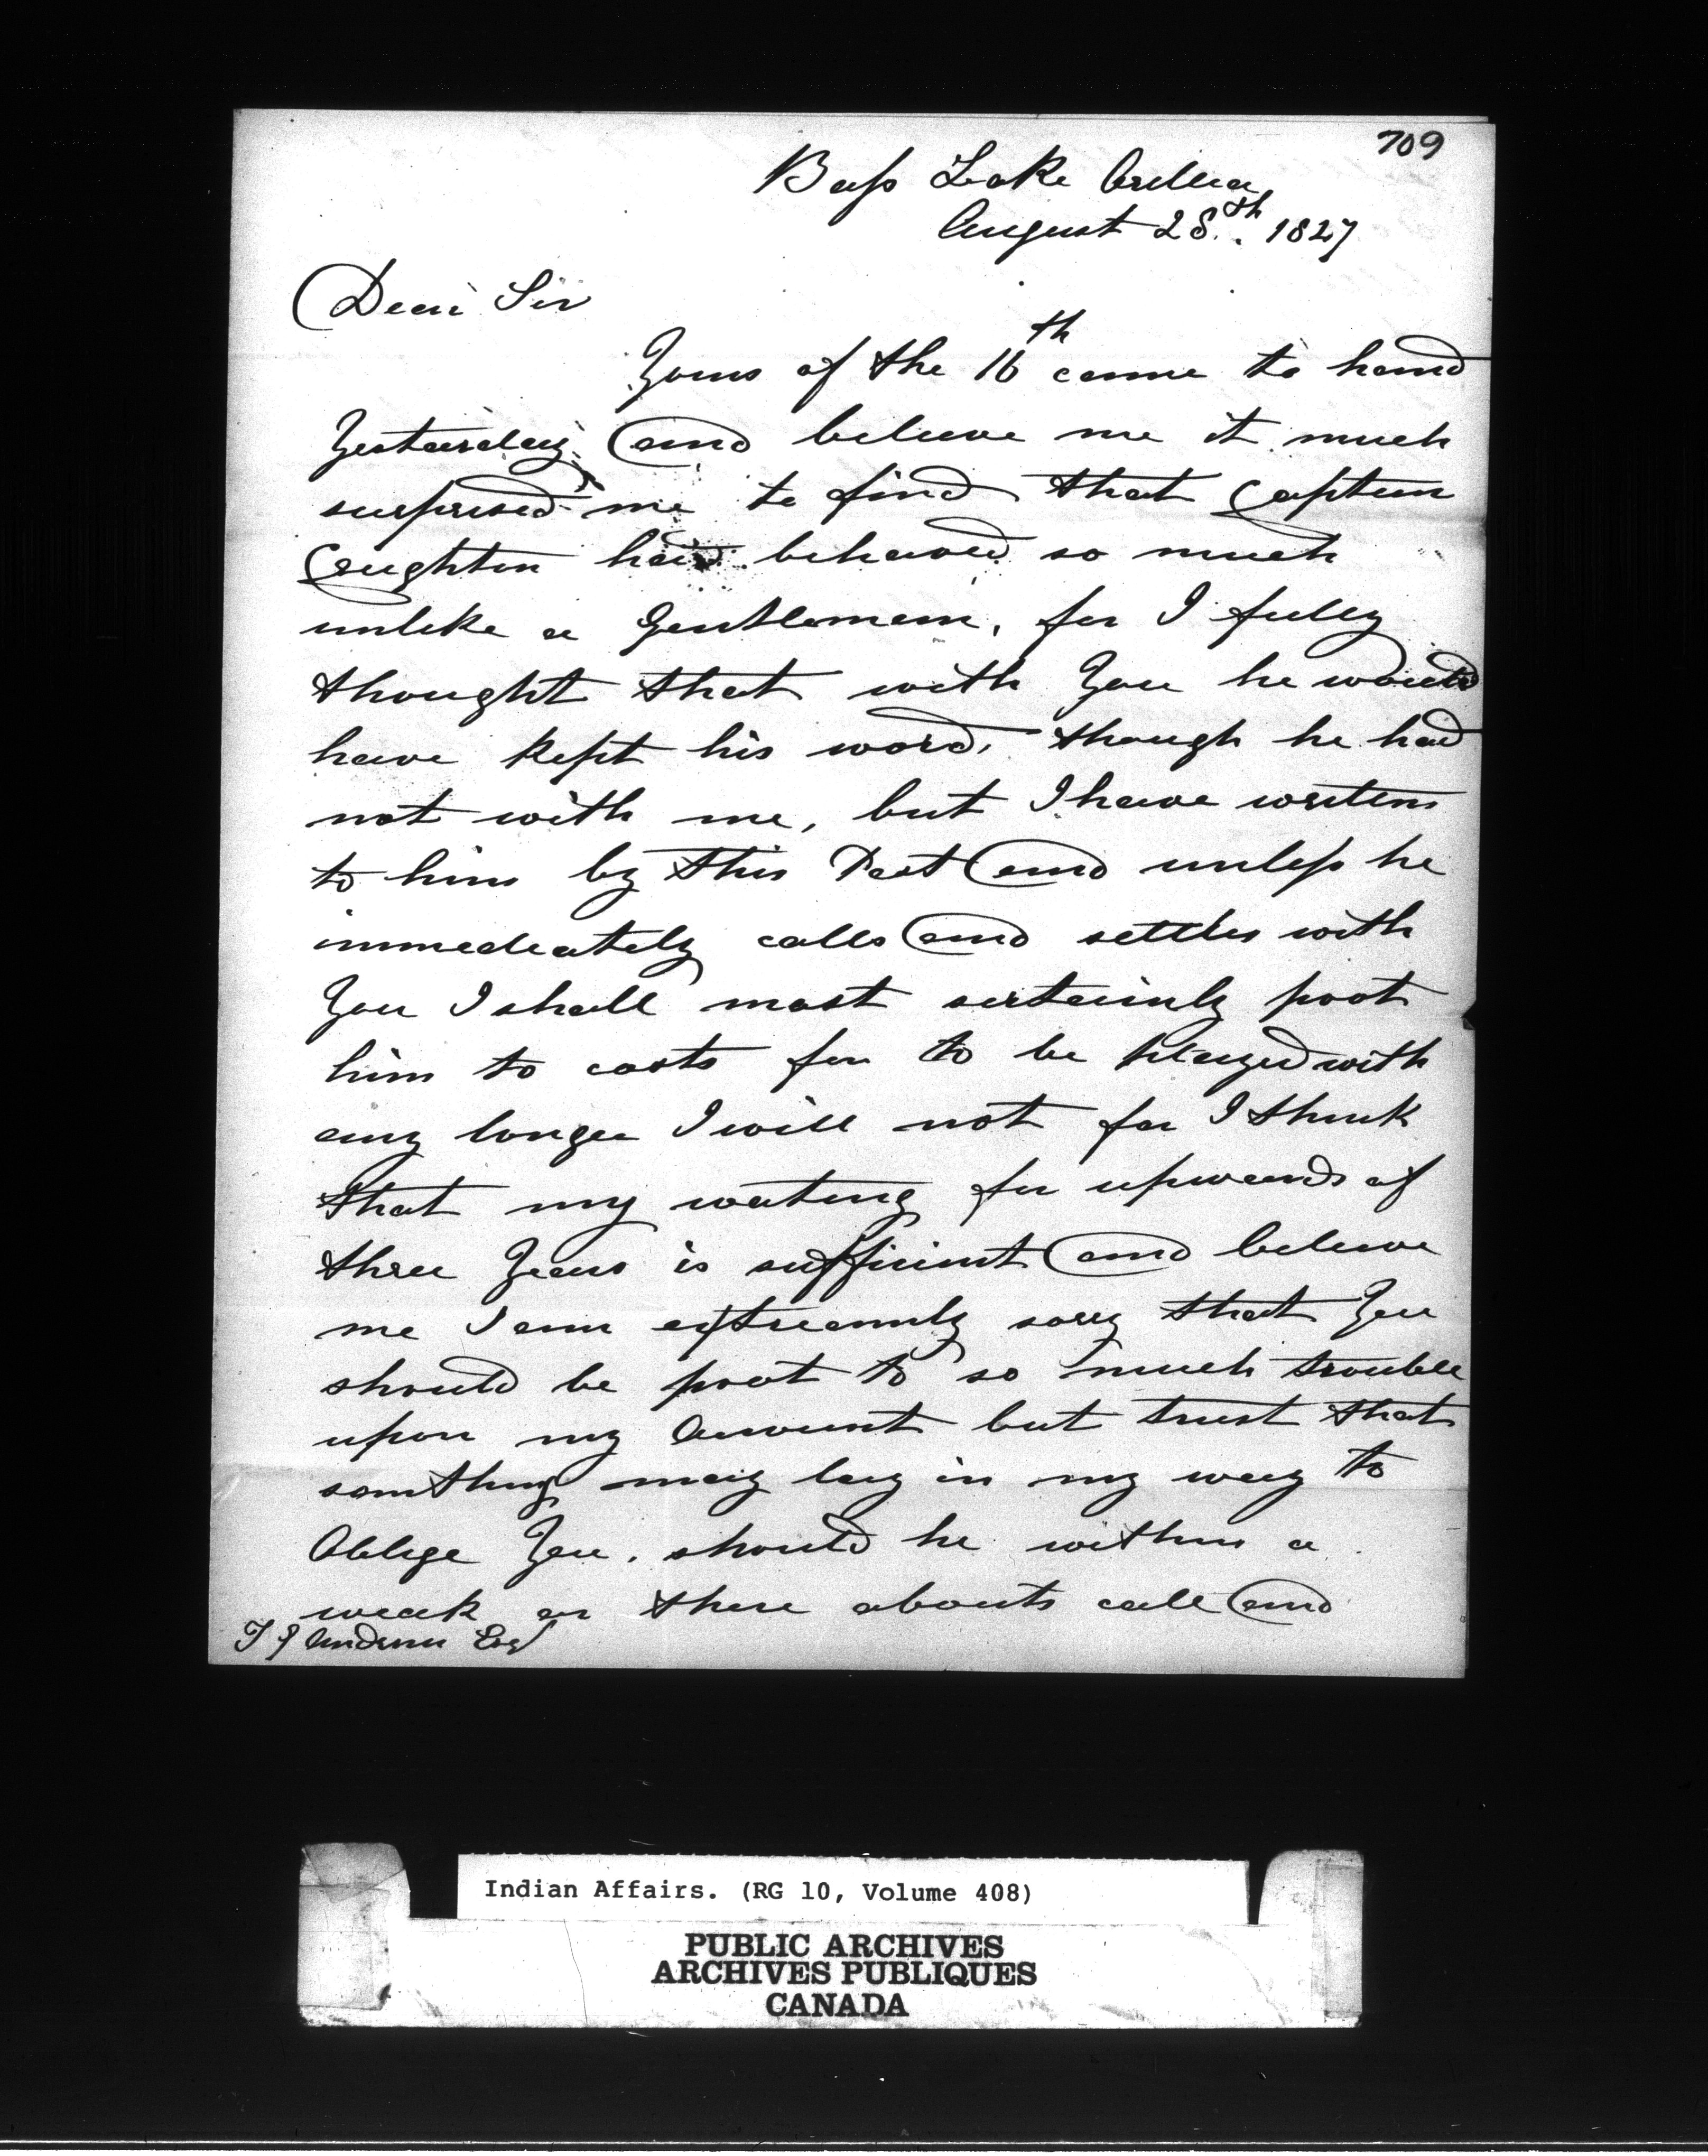 709
Bass Lake Orillia,
August 28th. 1827
Dear Sir
Yours of the 16th came to hand
Yesterday and believe me it much
surprised me to find that Captain
had behaved so much
unlike a Gentleman, for I fully
thought that with You he would
have kept his word, though he had
not with me, but I have writen
to him by this Post and unless he
immediately calls and settles with
You I shall most sertainly poot
him to costs for to be plaged with
any longer I will not for I think
that my wating for upwards of
three Years is sufficient and believe
me I am extreamly sorry that You
should be poot to so much trouble
upon my Account but trust that
somthing may lay in my way to
Oblige You. should he within a
weak or there abouts call and
T G Anderson Esq
Indian Affairs. (RG 10, Volume 408)
PUBLIC ARCHIVES
ARCHIVES PUBLIQUES
CANADA